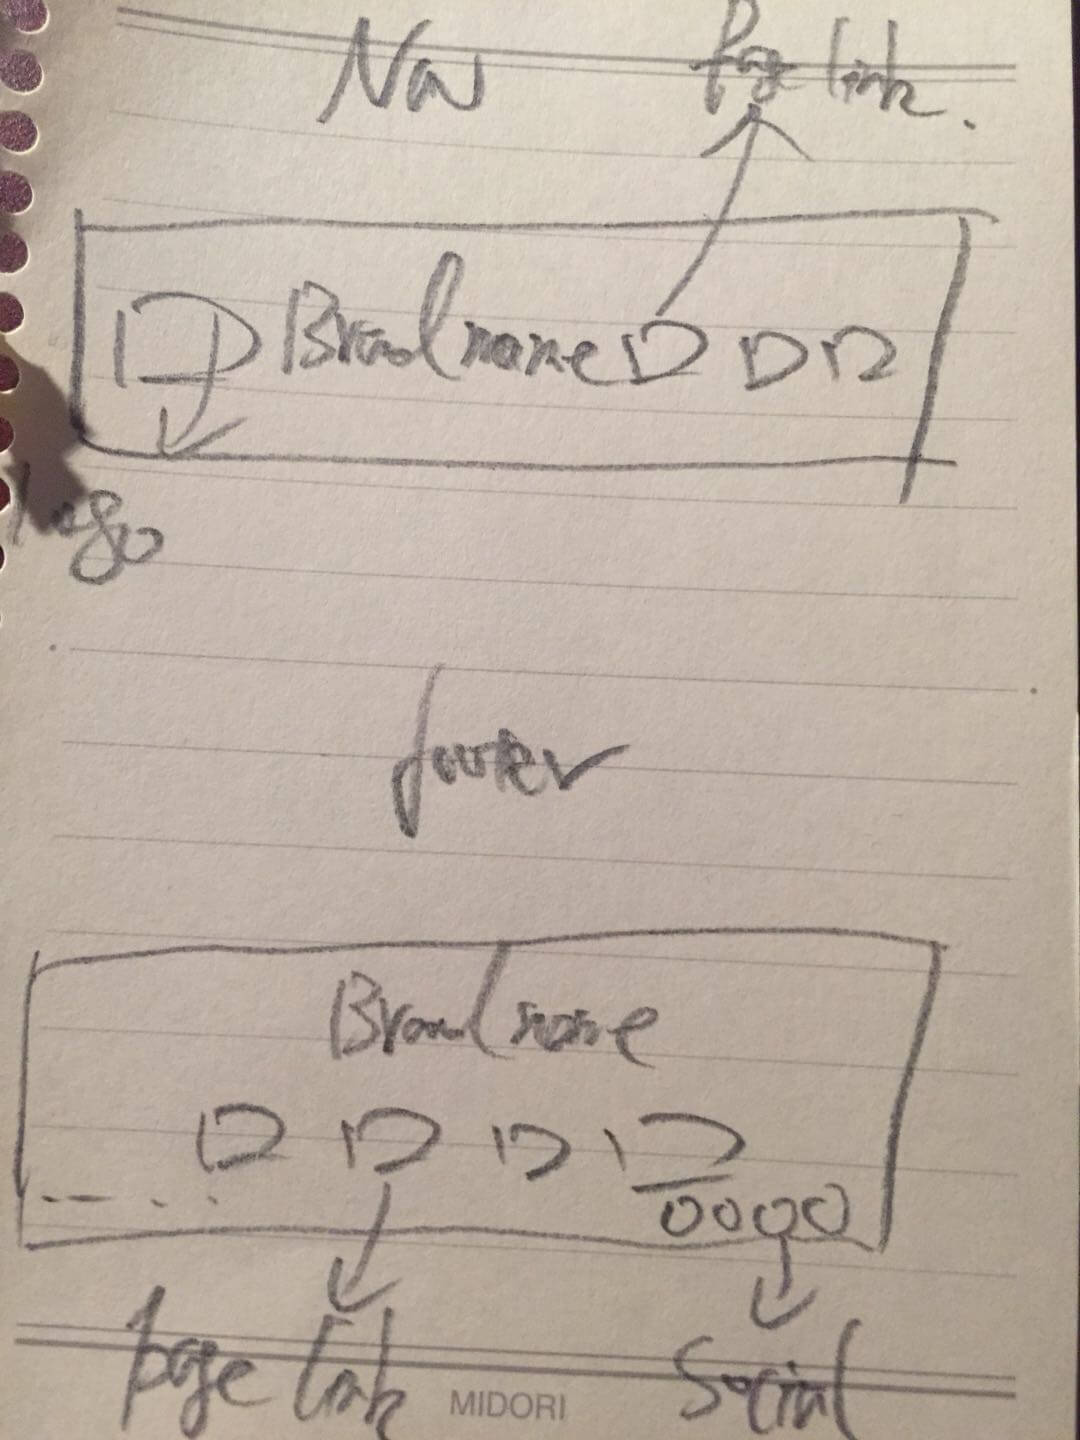 Nav
Page link.
Brand name
Logo
footer
Brand name
Page link
Social
MIDORI